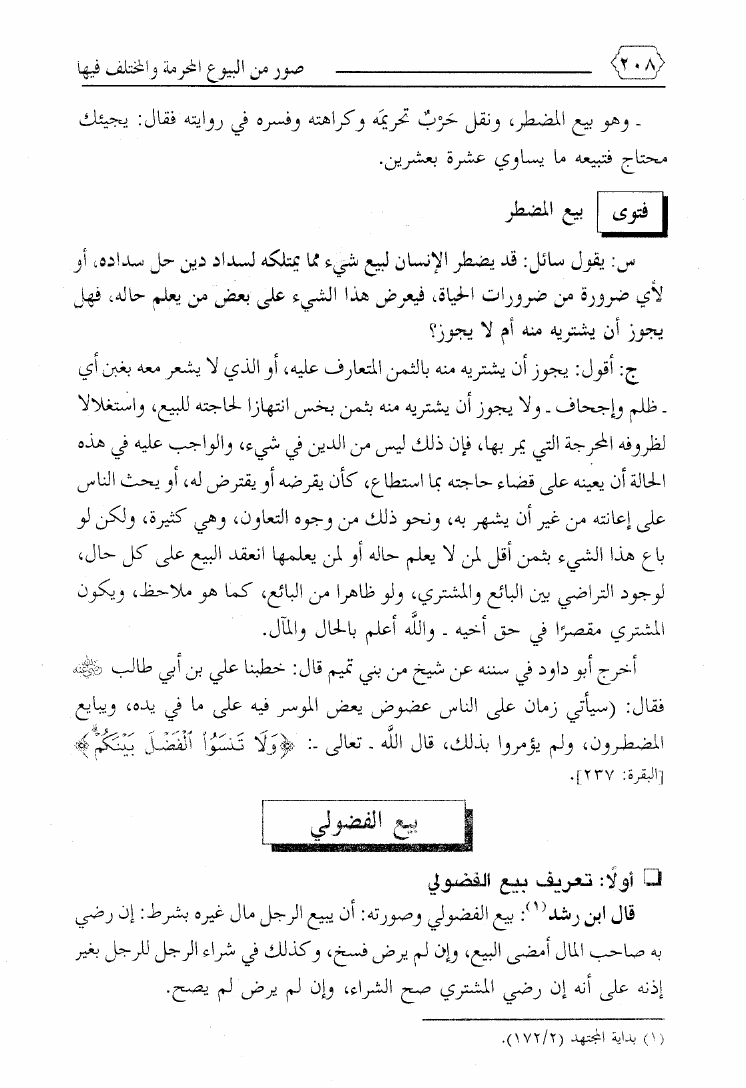 ٢٠٨ صور من البيوع المحرمة والمختلف فيها
ـ وهو بيع المضطر، ونقل حَرْبٌ تحريمَه وكراهته وفسره في روايته فقال: يجيئك
محتاج فتبيعه ما يساوي عشرة بعشرين.
فتوى بيع المضطر
س: يقول سائل: قد يضطر الإنسان لبيع شيء مما يمتلكه لسداد دين حل سداده، أو
لأي ضرورة من ضرورات الحياة، فيعرض هذا الشيء على بعض من يعلم حاله، فهل
يجوز أن يشتريه منه أم لا يجوز؟
ج: أقول: يجوز أن يشتريه منه بالثمن المتعارف عليه، أو الذي لا يشعر معه بغبن أي
ـ ظلم وإجحاف ـ ولا يجوز أن يشتريه منه بثمن بخس انتهازا لحاجته للبيع، واستغلالا
لظروفه المحرجة التي يمر بها، فإن ذلك ليس من الدين في شيء، والواجب عليه في هذه
الحالة أن يعينه على قضاء حاجته بما استطاع، كأن يقرضه أو يقترض له، أو يحث الناس
على إعانته من غير أن يشهر به، ونحو ذلك من وجوه التعاون، وهي كثيرة، ولكن لو
باع هذا الشيء بثمن أقل لمن لا يعلم حاله أو لمن يعلمها انعقد البيع على كل حال،
لوجود التراضي بين البائع والمشتري، ولو ظاهرا من البائع، كما هو ملاحظ، ويكون
المشتري مقصرًا في حق أخيه ـ واللَّه أعلم بالحال والمآل.
أخرج أبو داود في سننه عن شيخ من بني تميم قال: خطبنا علي بن أبي طالب رضي الله عنه
فقال: (سيأتي زمان على الناس عضوض يعض الموسر فيه على ما في يده، ويبايع
المضطرون، ولم يؤمروا بذلك، قال اللَّه ـ تعالى ـ: ﴿وَلَا تَنسَوُا۟ ٱلْفَضْلَ بَيْنَكُمْ﴾
[البقرة: ٢٣٧].
بيع الفضولي
❑ أولًا: تعريف بيع الفضولي
قال ابن رشد(١): بيع الفضولي وصورته: أن يبيع الرجل مال غيره بشرط: إن رضي
به صاحب المال أمضى البيع، وإن لم يرض فسخ، وكذلك في شراء الرجل للرجل بغير
إذنه على أنه إن رضي المشتري صح الشراء، وإن لم يرض لم يصح.
(١) بداية المجتهد (١٧٢/٢).